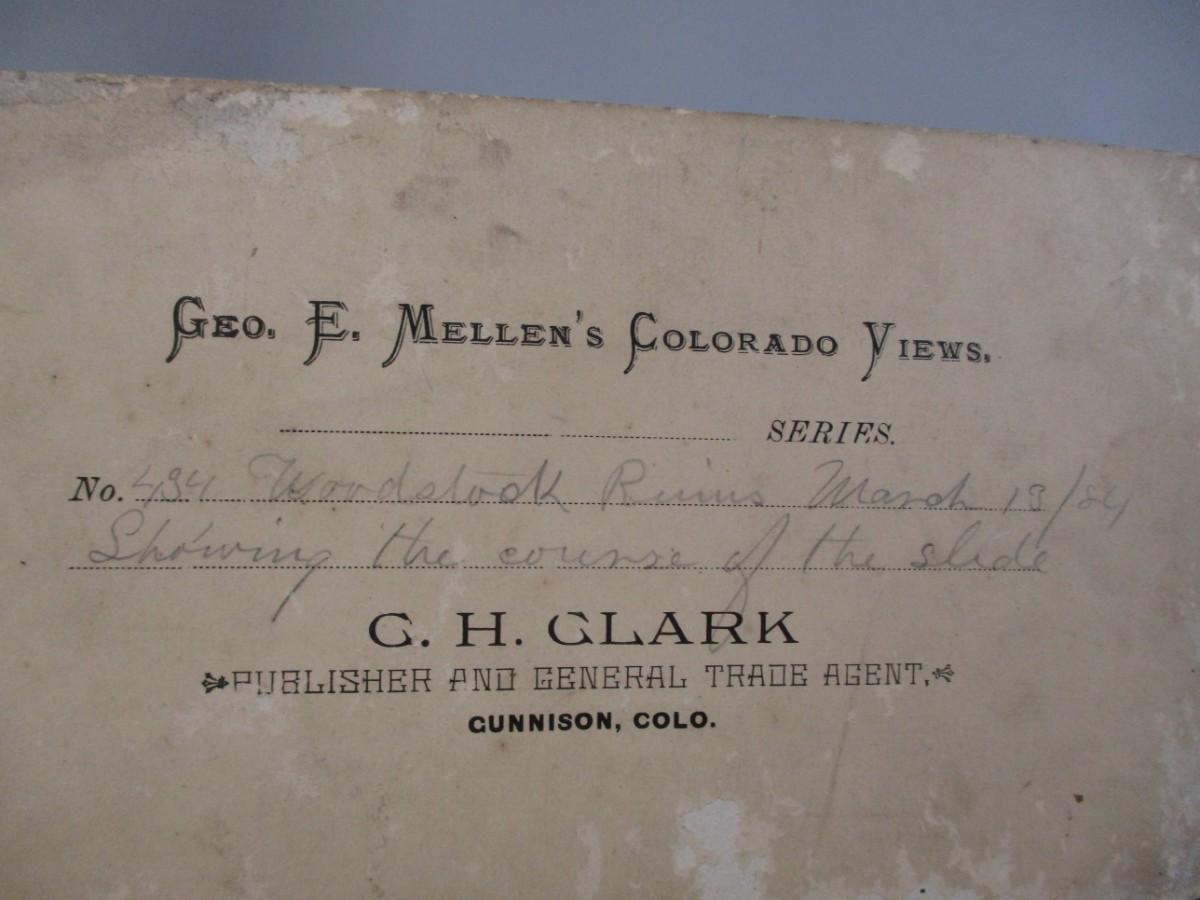 Geo. E. Mellen's Colorado Views.
SERIES.
No. 434 Woodstock Ruins March 13/84
Showing the course of the slide
C. H. CLARK
PUBLISHER AND GENERAL TRADE AGENT,
GUNNISON, COLO.